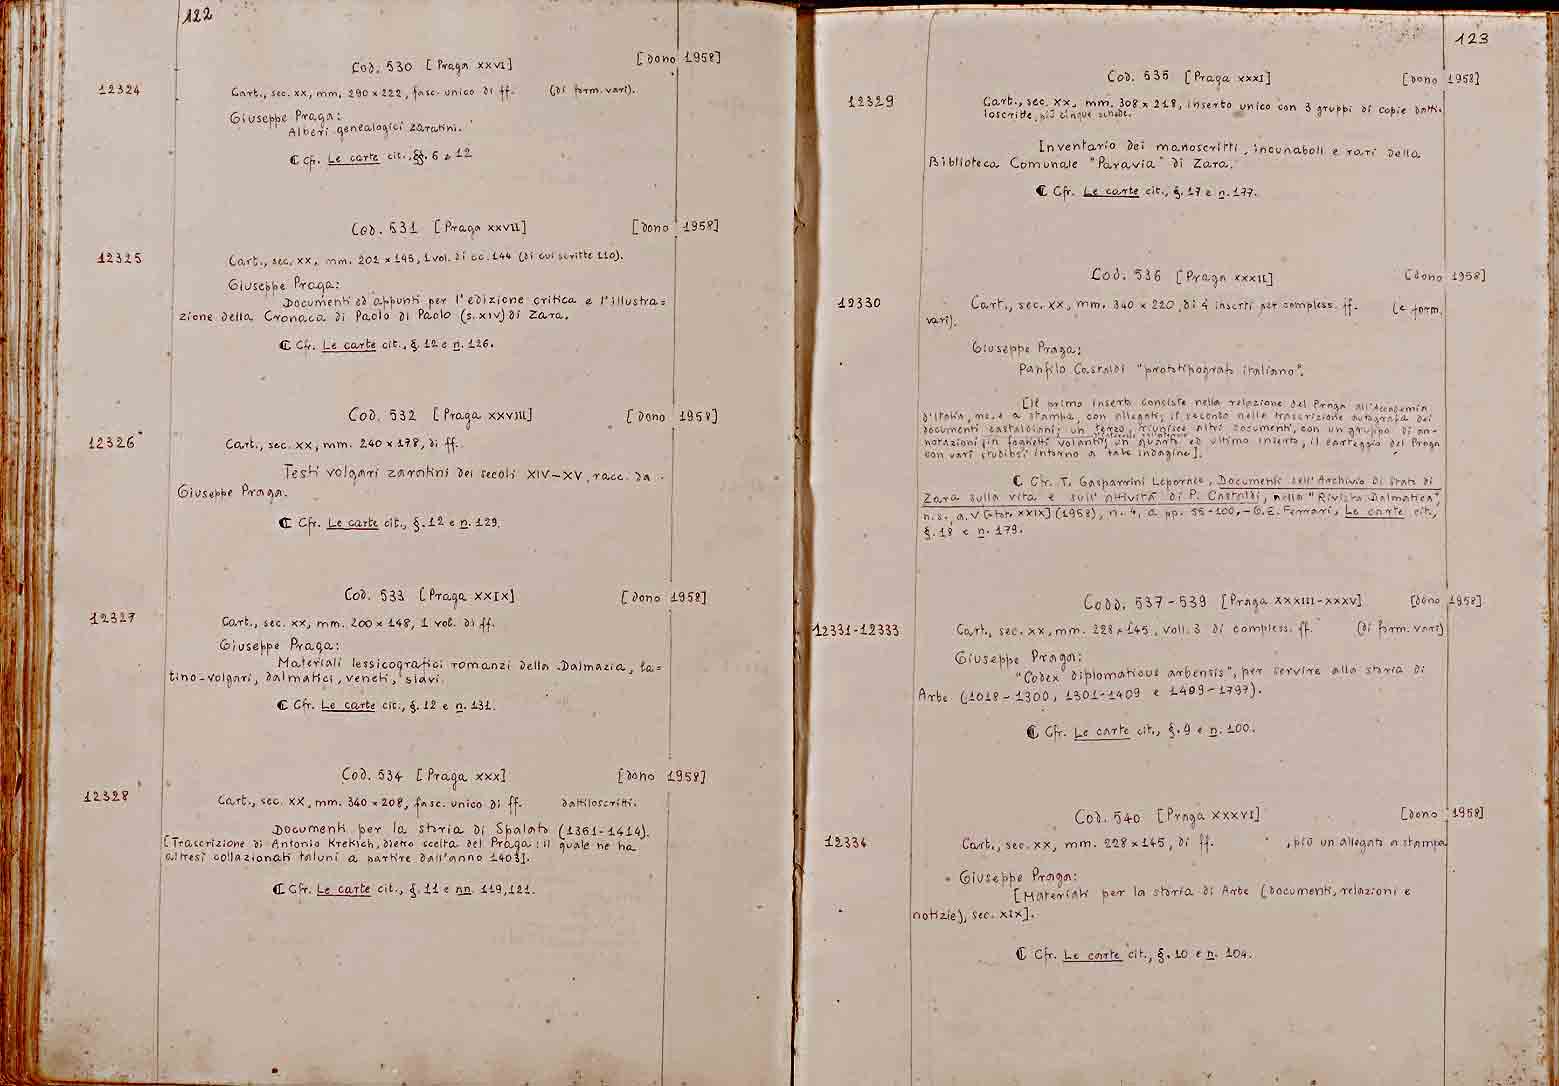 122
Cod. 530 [Praga XXVI] [dono 1958]
12324 Cart., sec. XX, mm. 290 x 222, fasc. unico di ff. (di form. vari).
Giuseppe Praga:
Alberi genealogici zaratini.
Cfr. Le carte cit., §§. 6 e 12
Cod. 531 [Praga XXVII] [dono 1958]
12325 Cart., sec. XX, mm. 202 x 145, 1 vol. di cc. 144 (di cui scritte 110).
Giuseppe Praga:
Documenti ed appunti per l'edizione critica e l'illustra=
zione della Cronaca di Paolo di Paolo (s. XIV) di Zara.
Cfr. Le carte cit., §. 12 e n. 126.
Cod. 532 [Praga XXVIII] [dono 1958]
12326 Cart., sec. XX, mm. 240 x 178, di ff.
Testi volgari zaratini dei secoli XIV-XV, racc. da
Giuseppe Praga.
Cfr. Le carte cit., §. 12 e n. 129.
Cod. 533 [Praga XXIX] [dono 1958]
12327 Cart., sec. XX, mm. 200 x 148, 1 vol. di ff.
Giuseppe Praga:
Materiali lessicografici romanzi della Dalmazia, la=
tino-volgari, dalmatici, veneti, slavi.
Cfr. Le carte cit., §. 12 e n. 131.
Cod. 534 [Praga XXX] [dono 1958]
12328 Cart., sec. XX, mm. 340 x 208, fasc. unico di ff. dattiloscritti.
Documenti per la storia di Spalato (1361-1414).
[Trascrizione di Antonio Krekich, dietro scelta del Praga: il quale ne ha
altresì collazionati taluni a partire dall'anno 1403].
Cfr. Le carte cit., §. 11 e nn. 119, 121.
123
Cod. 535 [Praga XXXI] [dono 1958]
12329 Cart., sec. XX, mm. 308 x 218, inserto unico con 3 gruppi di copie datti-
loscritte, più cinque schede.
Inventario dei manoscritti, incunaboli e rari della
Biblioteca Comunale "Paravia" di Zara.
Cfr. Le carte cit., §. 17 e n. 177.
Cod. 536 [Praga XXXII] [dono 1958]
12330 Cart., sec. XX, mm. 340 x 220, di 4 inserti per compless. ff. (e form.
vari).
Giuseppe Praga:
Panfilo Castaldi "prototipografo italiano".
[Il primo inserto consiste nella relazione del Praga all'Accademia
d'Italia, ms. e a stampa, con allegati; il secondo nella trascrizione autografa dei
documenti castaldiani; un terzo, riunisce altri documenti, con un gruppo di an-
notazioni in foglietti volanti; un quarto ed ultimo inserto, il carteggio del Praga
con vari studiosi intorno a tale indagine].
Cfr. T. Gasparrini Leporace, Documenti dell'Archivio di Stato di
Zara sulla vita e sull'attività di P. Castaldi, nella "Rivista Dalmatica",
n.s., a. V [tot. XXIX] (1958), n. 4, a pp. 55-100, - G. E. Ferrari, Le carte cit.,
§. 18 e n. 179.
Codd. 537-539 [Praga XXXIII-XXXV] [dono 1958]
12331-12333 Cart., sec. XX, mm. 228 x 145, voll. 3 di compless. ff. (di form. vari)
Giuseppe Praga:
"Codex diplomaticus arbensis", per servire alla storia di
Arbe (1018-1300, 1301-1409 e 1409-1797).
Cfr. Le carte cit., §. 9 e n. 100.
Cod. 540 [Praga XXXVI] [dono 1958]
12334 Cart., sec. XX, mm. 228 x 145, di ff. , più un allegato a stampa
Giuseppe Praga:
[Materiali per la storia di Arbe (documenti, relazioni e
notizie), sec. XIX].
Cfr. Le carte cit., §. 10 e n. 104.